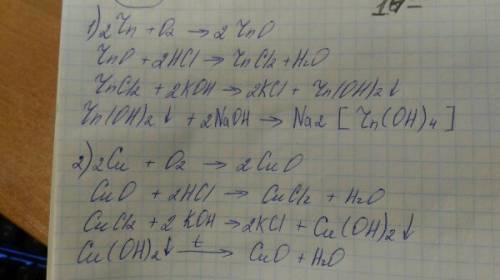 1) 2Zn + O₂ → 2ZnO
ZnO + 2HCl → ZnCl₂ + H₂O
ZnCl₂ + 2KOH → 2KCl + Zn(OH)₂↓
Zn(OH)₂↓ + 2NaOH → Na₂[Zn(OH)₄]
2) 2Cu + O₂ → 2CuO
CuO + 2HCl → CuCl₂ + H₂O
CuCl₂ + 2KOH → 2KCl + Cu(OH)₂↓
Cu(OH)₂↓ —t→ CuO + H₂O